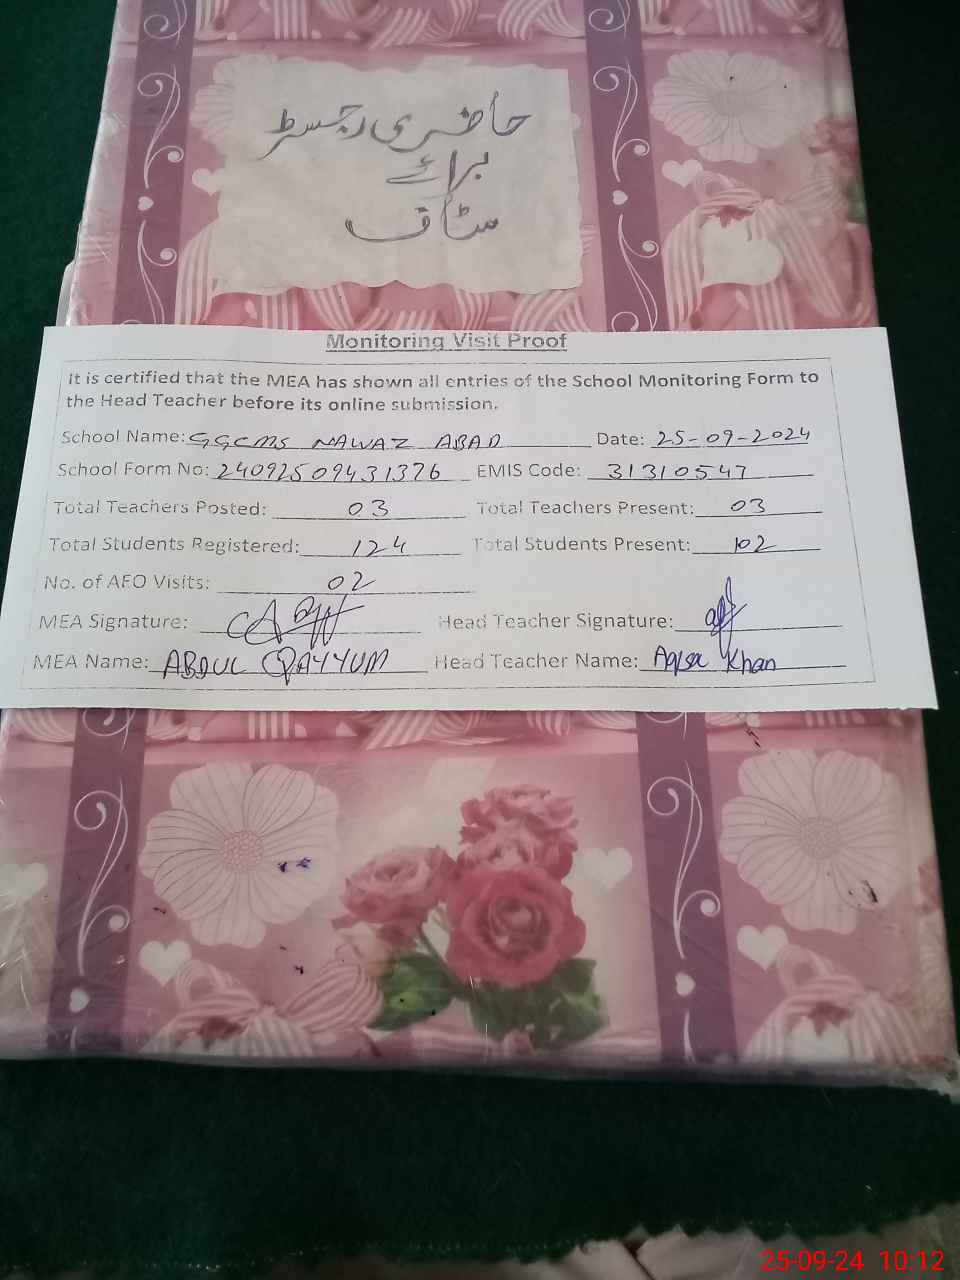 حاضری رجسٹر
برائے
سٹاف
Monitoring Visit Proof
It is certified that the MEA has shown all entries of the School Monitoring Form to
the Head Teacher before its online submission.
School Name: GGCMS NAWAZ ABAD Date: 25-09-2024
School Form No: 24092509431376 EMIS Code: 31310547
Total Teachers Posted: 03 Total Teachers Present: 03
Total Students Registered: 124 Total Students Present: 102
No. of AFO Visits: 02
MEA Signature: Head Teacher Signature:
MEA Name: ABDUL QAYYUM Head Teacher Name: Aqsa Khan
25-09-24 10:12